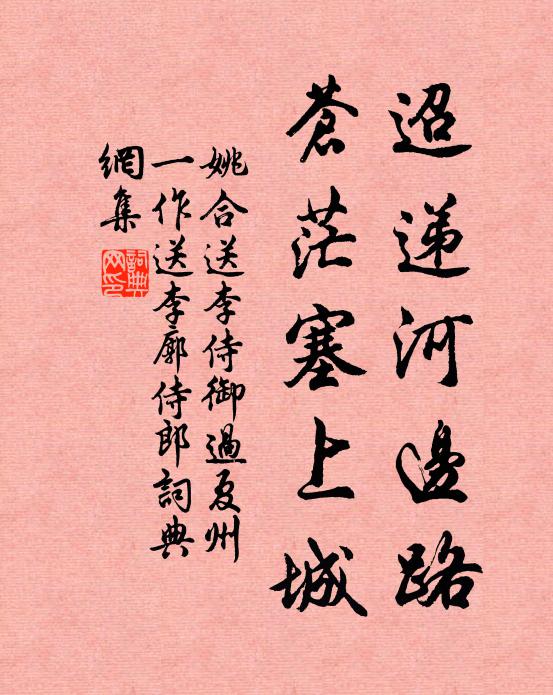 迢递河邊路
蒼茫茫塞上城
姚合送李侍御過夏州
一作送李廓侍郎詞典
網集
詞典
网印